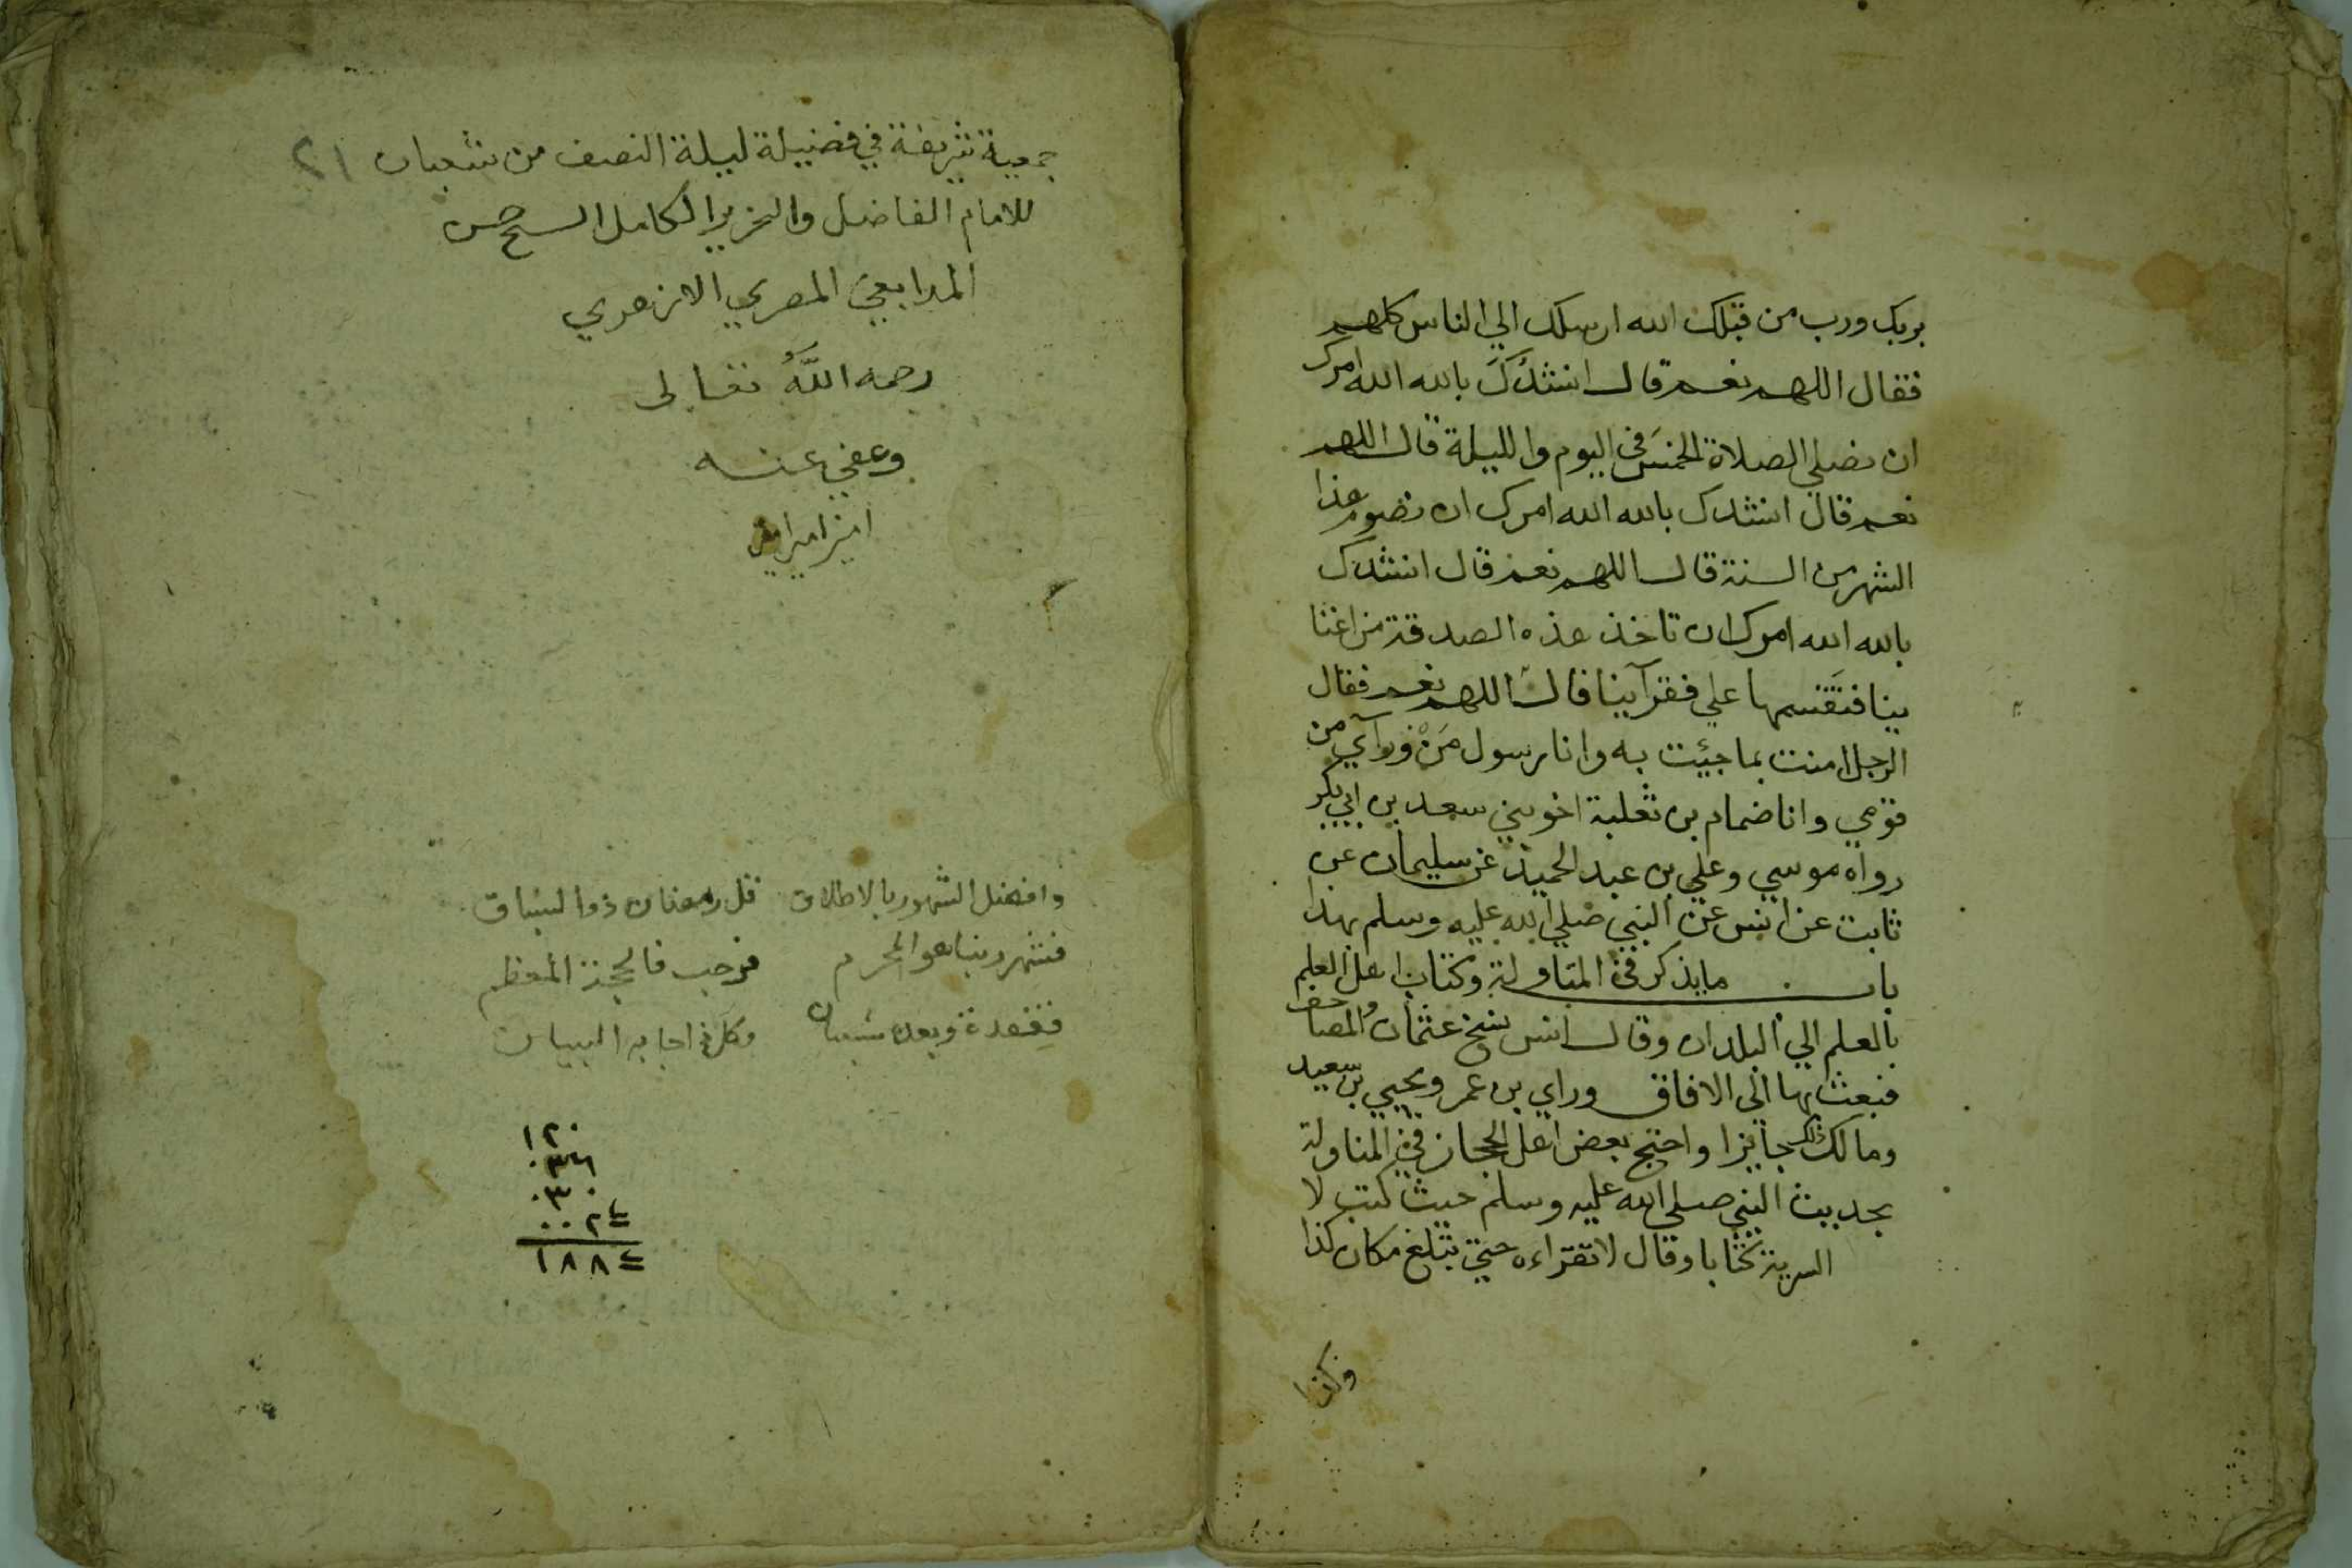 بربك ورب من قبلك الله ارسلك الي الناس كلهم
فقال اللهم نعم قال انشدك بالله الله امرك
ان نصلي الصلاة الخمس في اليوم والليلة قال اللهم
نعم قال انشدك بالله الله امرك ان نصوم هذا
الشهر من السنة قال اللهم نعم قال انشدك
بالله الله امرك ان تاخذ هذه الصدقة من اغنيا
ينا فتقسمها علي فقرآينا قال اللهم نعم فقال
الرجل امنت بما جيئت به وانا رسول من ورآي من
قومي وانا ضمام بن ثعلبة اخو بني سعد بن ابي بكر
رواه موسي وعلي بن عبد الحميد عن سليمان عن
ثابت عن انس عن النبي صلي الله عليه وسلم بهذا
باب ما يذكر في المناولة وكتاب اهل العلم
بالعلم الي البلدان وقال انس نسخ عثمان المصاحف
فبعث بها الي الافاق وراي بن عمر ويحيي بن سعيد
ومالك ذلك جايزا واحتج بعض اهل الحجاز في المناولة
بحديث النبي صلي الله عليه وسلم حيث كتب لا
السرية كتابا وقال لا تقراءه حتي تبلغ مكان كذا
وكذا
جمعية شريفة في فضيلة ليلة النصف من شعبان ٢١
للامام الفاضل والنحرير الكامل الشيخ حسن
المدابغي المصري الازهري
رحمه الله تعالى
وعفي عنه
امين امين
وافضل الشهور بالاطلاق قل رمضان ذوا لسباق
فشهر ربنا هو المحرم فرجب فالحجة المعظم
فقعدة وبعده شعبان وكل ذا جا به البيان
١٢٠
٠٣٤
٠٣٠
٠٠٢٤
١٨٨٤